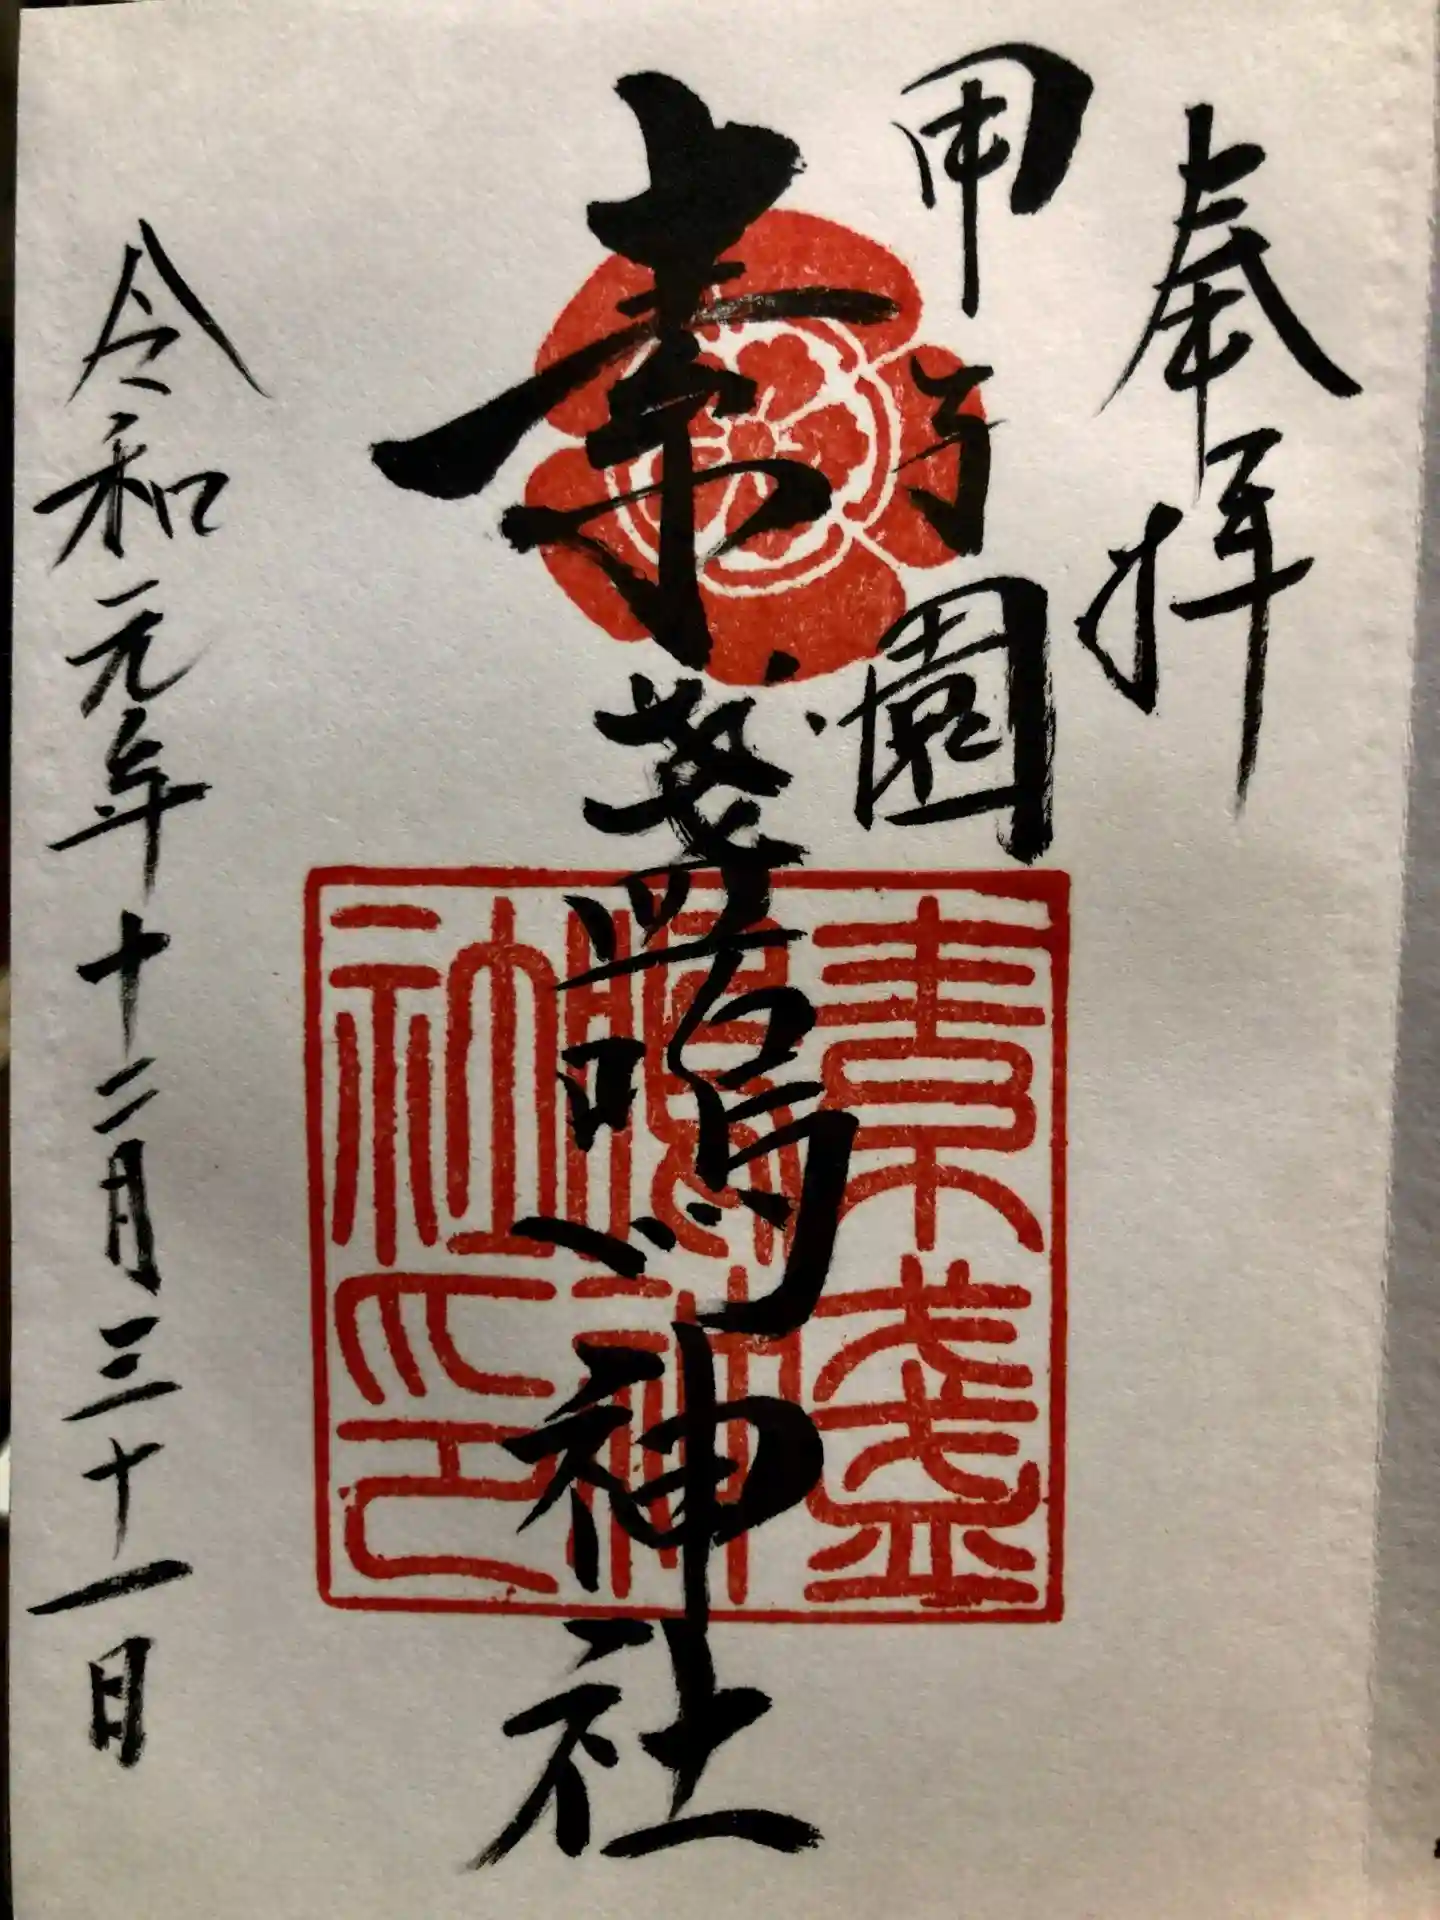 奉拝
甲子園
素盞嗚神社
素盞
嗚神
社之印
令和元年十二月三十一日